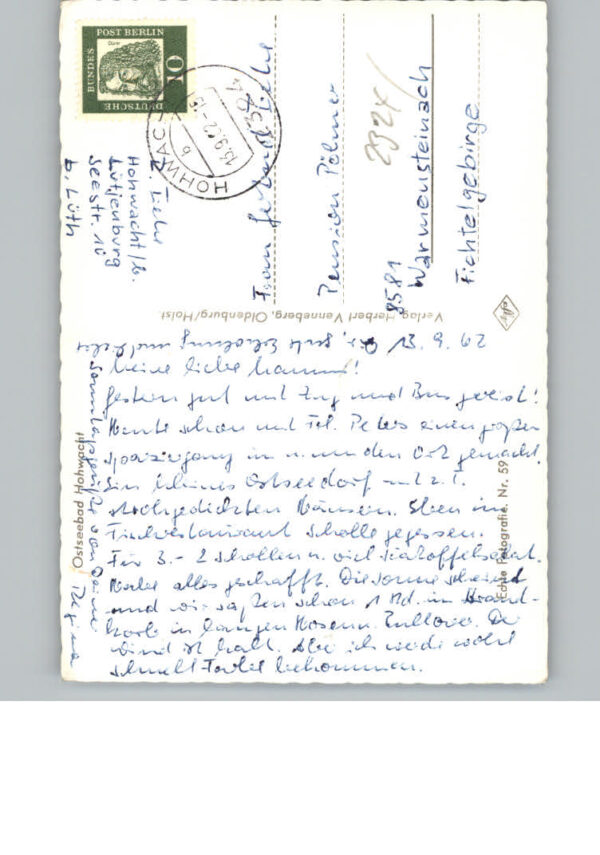 DEUTSCHE
BUNDES
POST BERLIN
10
HOHWACHT
13.9.62-15
b
Hohwacht/b.
Lütjenburg
Seestr. 10
b. Lüth
Frau Gertrud
Pension
2324/
8581
Warmensteinach
Fichtelgebirge
Verlag Herbert Venneberg, Oldenburg/Holst.
Agfa
Ostseebad Hohwacht
Echte Fotografie. Nr. 59
13. 9. 62
Meine liebe Mammi!
Gestern gut mit Zug und Bus gereist!
Heute schon mit Frl. Peters einen großen
Spaziergang in u. um den Ort gemacht.
Ein kleines Ostseedorf mit z. T.
strohgedeckten Häusern. Eben im
Fischrestaurant Scholle gegessen.
Für 3.- 2 Schollen u. viel Kartoffelsalat.
Habe alles geschafft. Die Sonne scheint
und wir saßen schon 1 Std. im Strand-
korb in langen Hosen u. Pullover. Der
Wind ist kalt. Aber ich werde wohl
schnell Farbe bekommen.
gute Erholung und viele
Sonntagsgrüße von Deiner
Regina